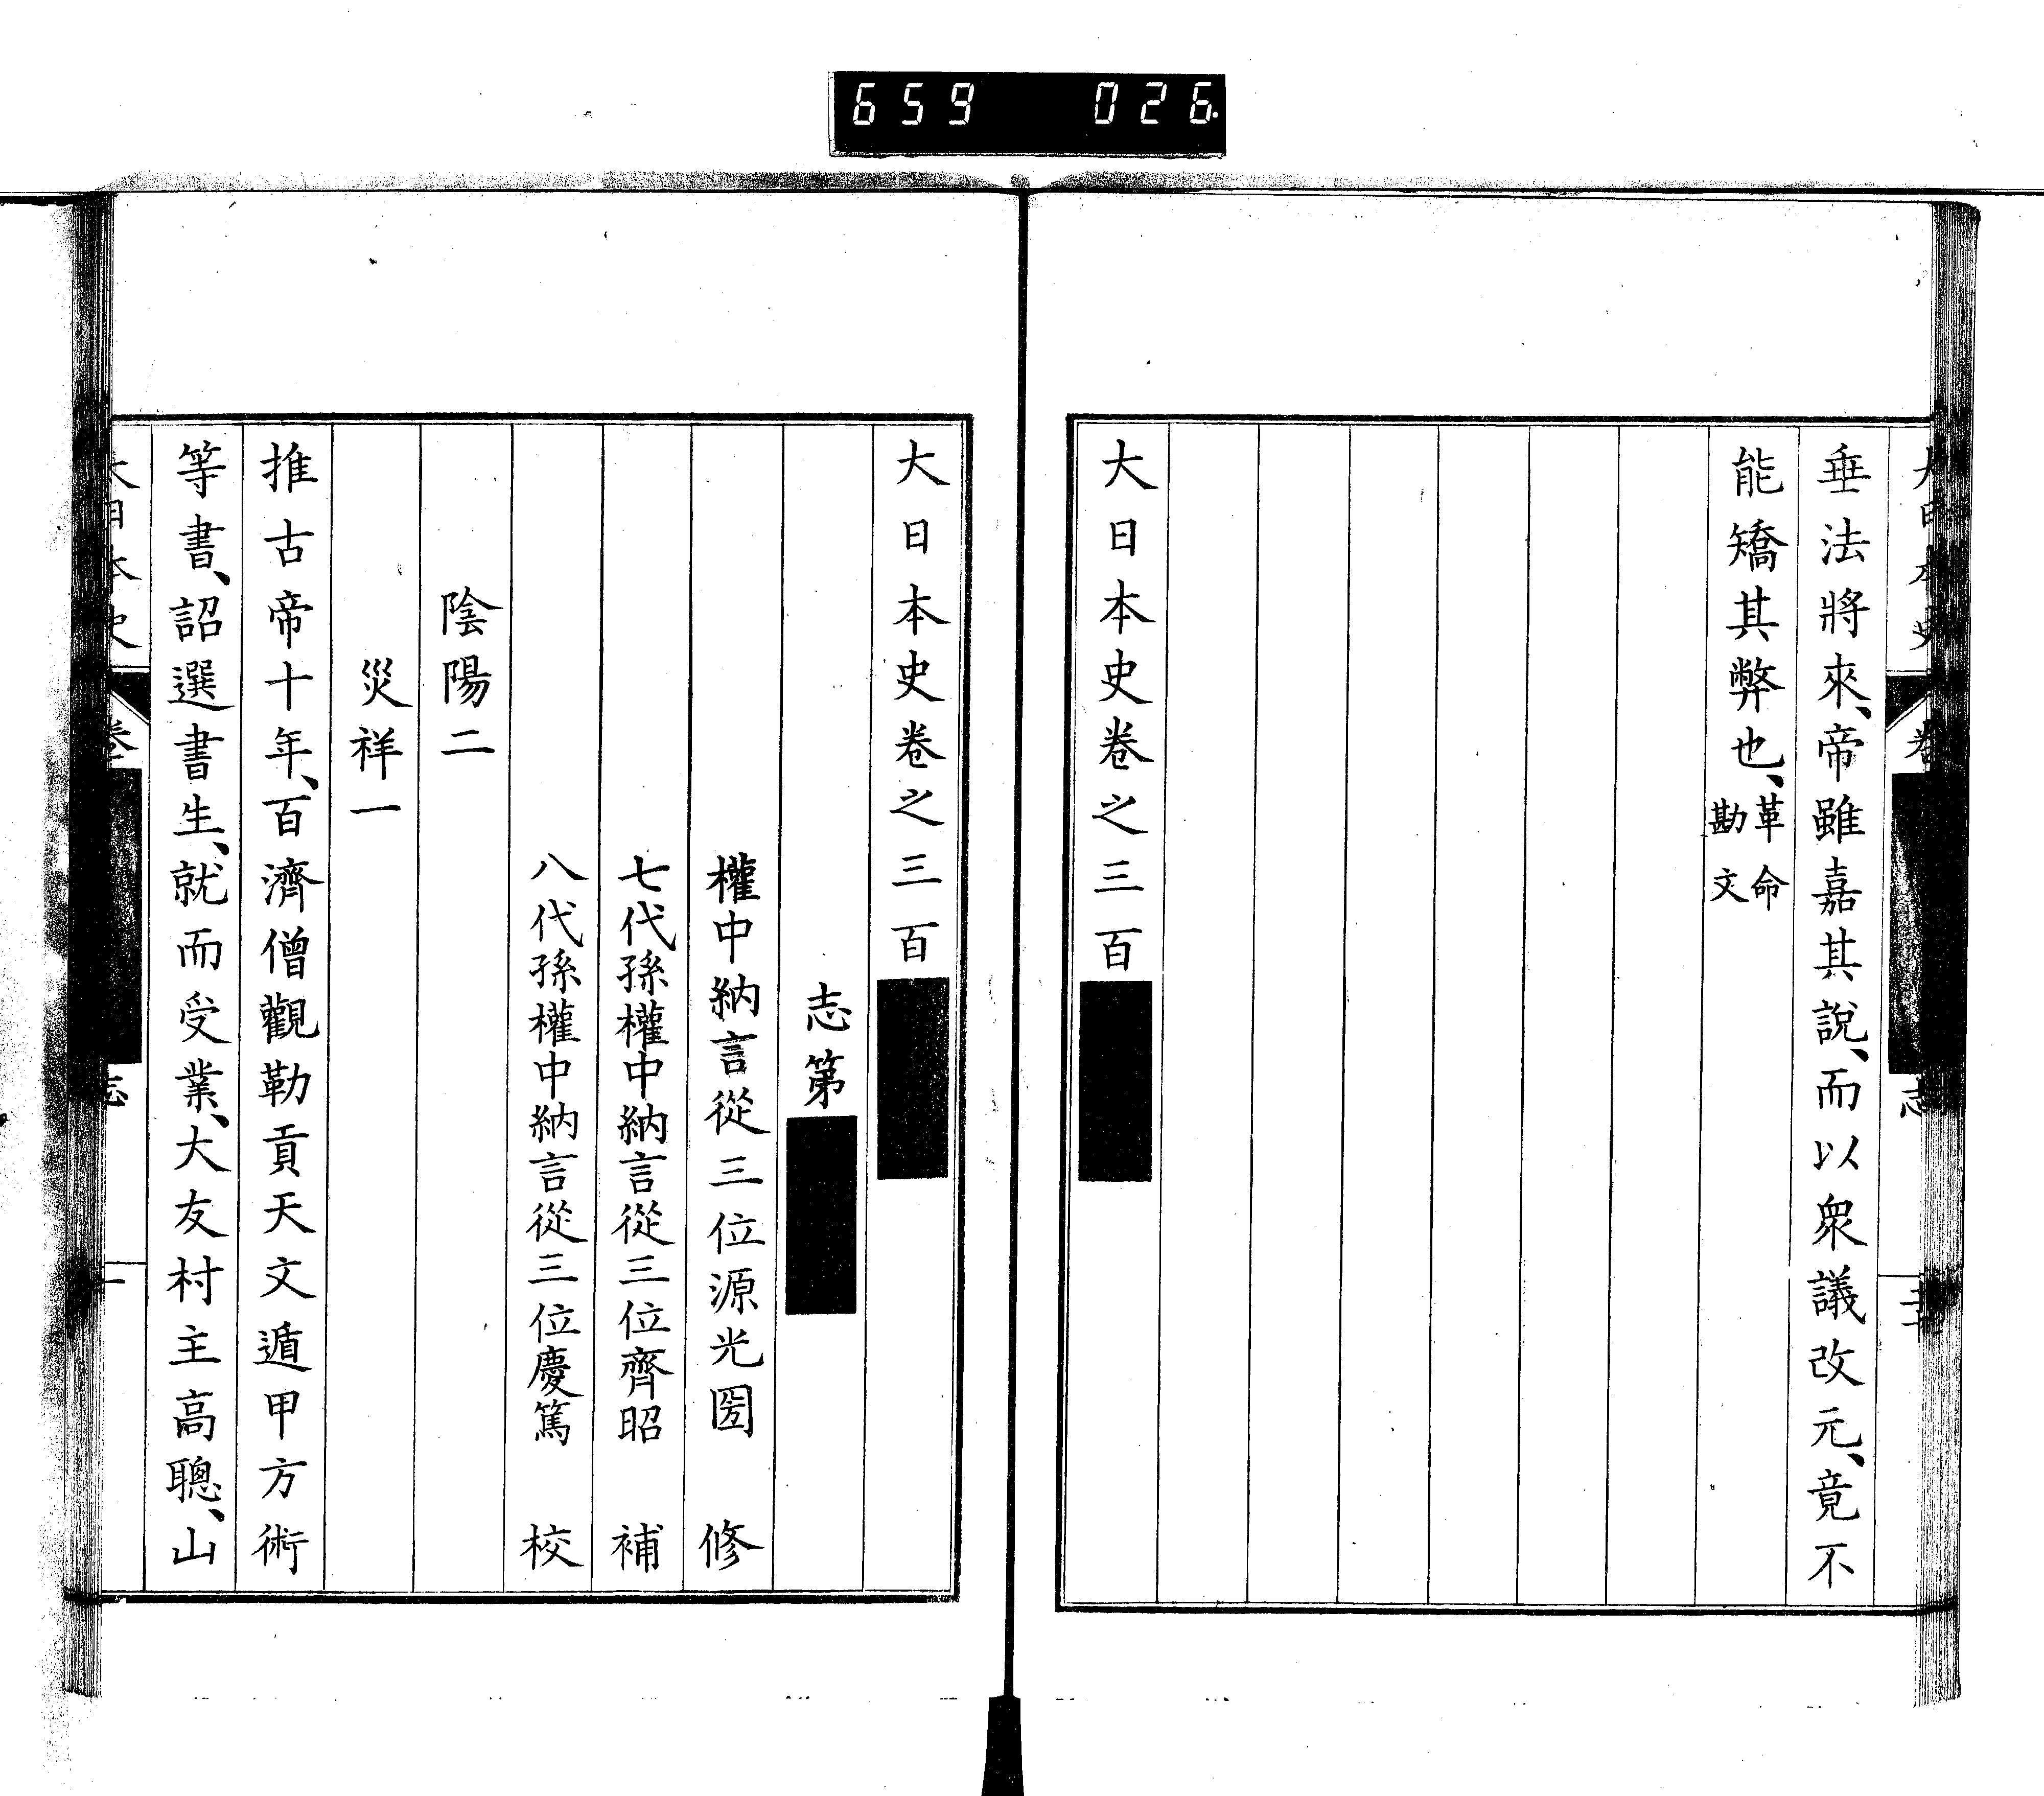 659 026
垂法將來、帝雖嘉其說、而以衆議改元、竟不
能矯其弊也、革命勘文
大日本史卷之三百
大日本史卷之三百
志第
權中納言從三位源光圀 修
七代孫權中納言從三位齊昭 補
八代孫權中納言從三位慶篤 校
陰陽二
災祥一
推古帝十年、百濟僧觀勒貢天文遁甲方術
等書、詔選書生、就而受業、大友村主高聰、山